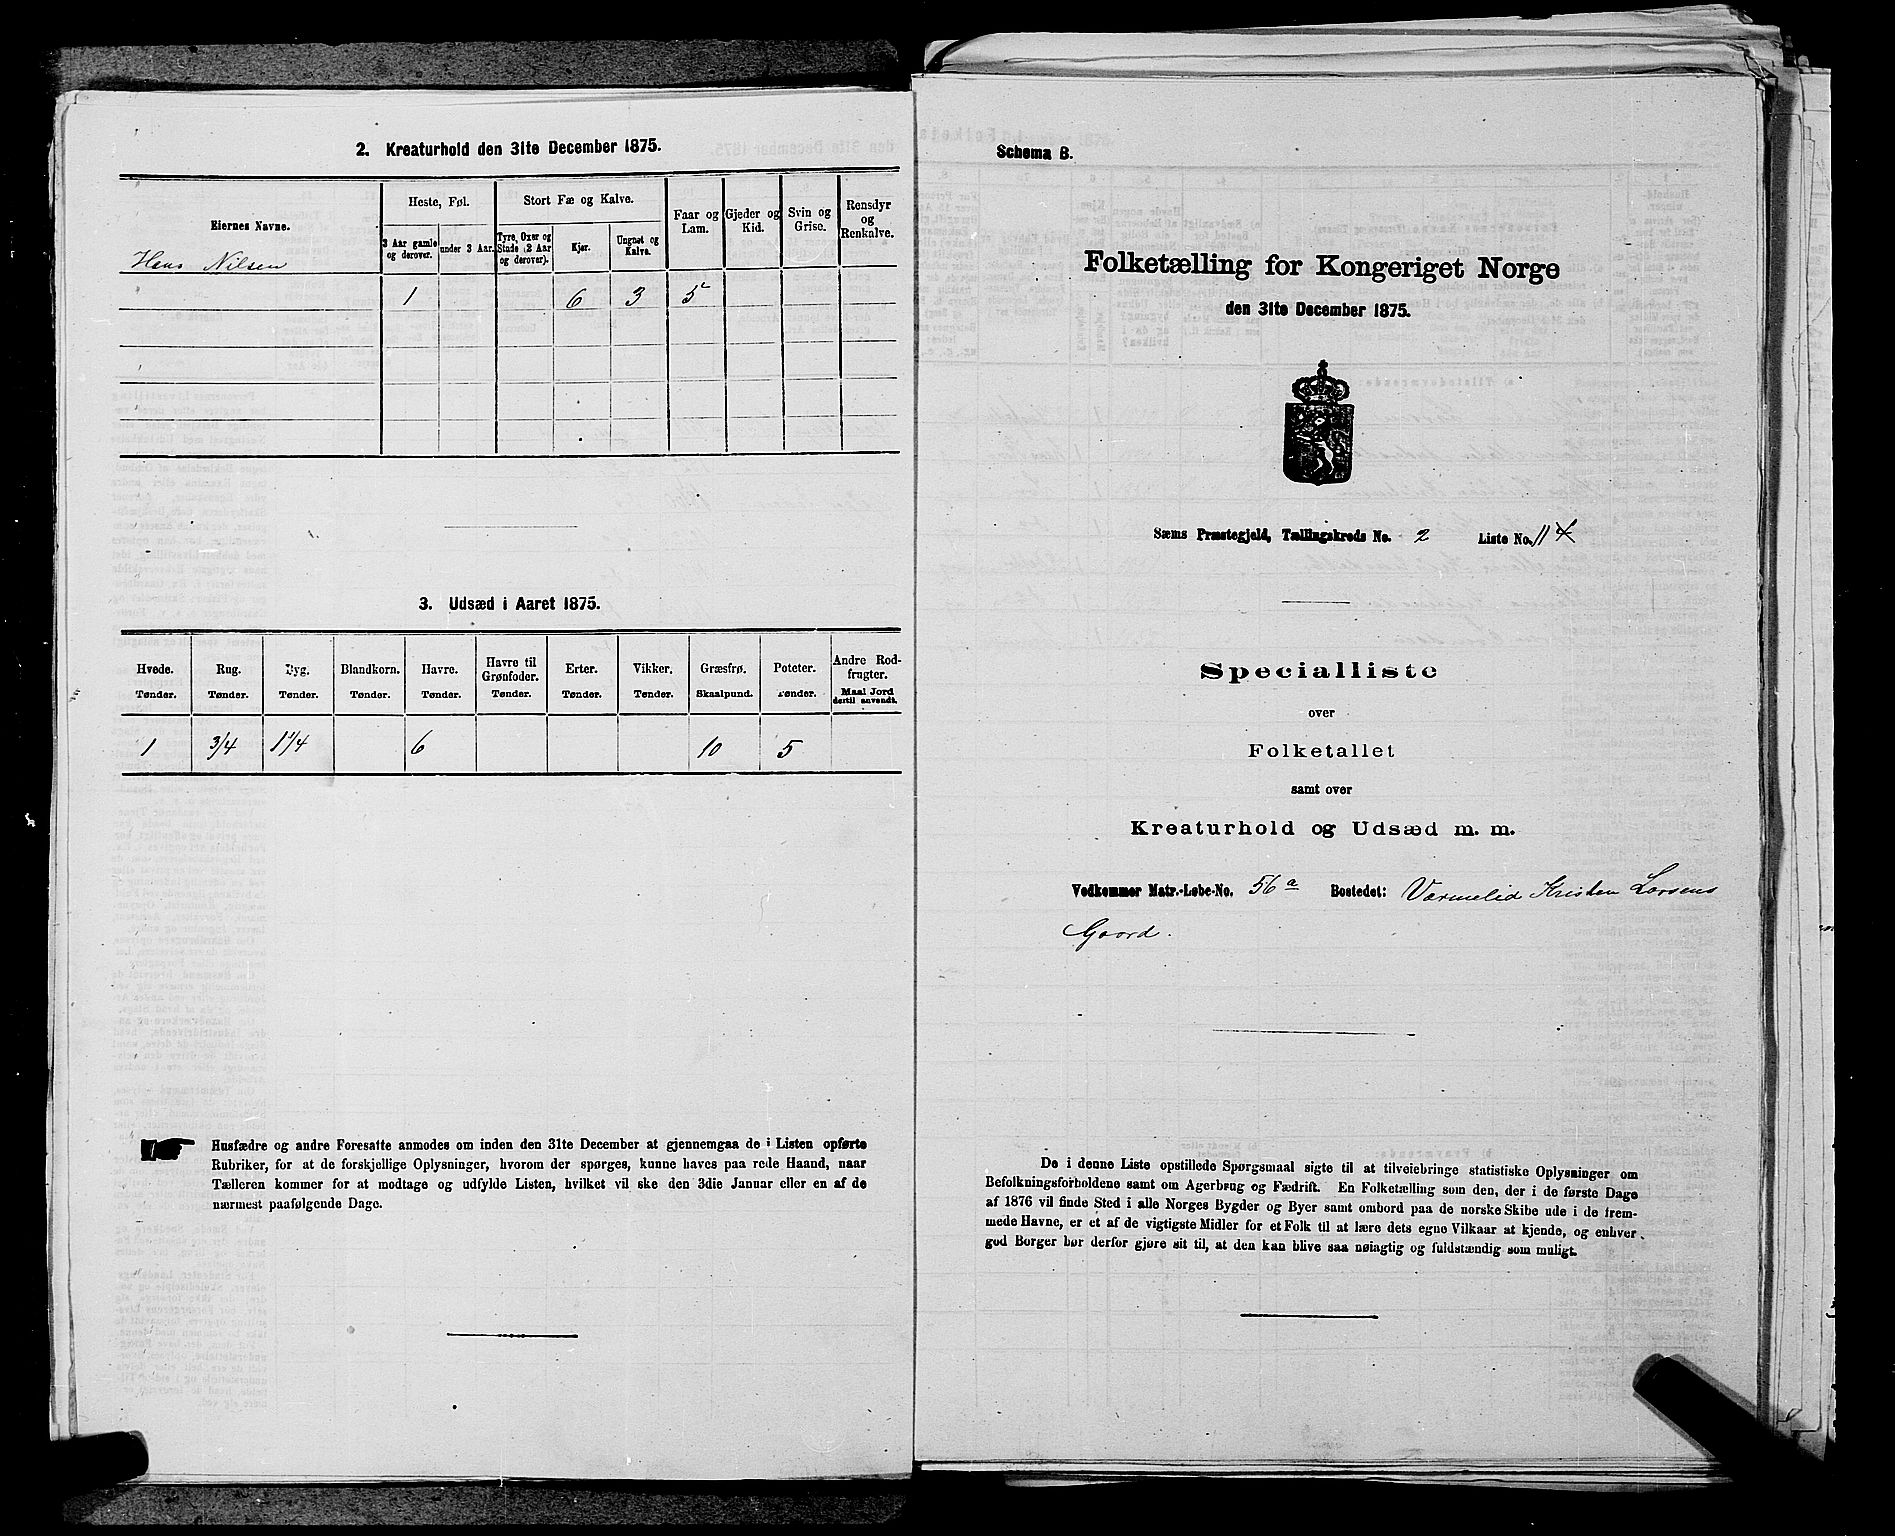 2. Kreaturhold den 31te December 1875.
Eiernes Navne.
Heste, Føl.
Stort Fæ og Kalve.
Faar og Lam.
Gjeder og Kid.
Svin og Grise.
Rensdyr og Renkalve.
3 Aar gamle og derover.
under 3 Aar.
Tyre, Oxer og Stude (2 Aar og derover).
Kjør.
Ungnøt og Kalve.
Hans Nilsen
1 6 3 5
3. Udsæd i Aaret 1875.
Hvede. Rug. Byg. Blandkorn. Havre. Havre til Grønfoder. Erter. Vikker. Græsfrø. Poteter. Andre Rodfrugter.
Tønder. Tønder. Tønder. Tønder. Tønder. Tønder. Tønder. Tønder. Skaalpund. Tønder. Maal Jord dertil anvendt.
1 3/4 1 1/4 6 10 5
Husfædre og andre Foresatte anmodes om inden den 31te December at gjennemgaa de i Listen opførte
Rubriker, for at de forskjellige Oplysninger, hvorom der spørges, kunne haves paa rede Haand, naar
Tælleren kommer for at modtage og udfylde Listen, hvilket vil ske den 3die Januar eller en af de
nærmest paafølgende Dage.
Schema B.
Folketælling for Kongeriget Norge
den 31te December 1875.
Sæms Præstegjeld, Tællingskreds No. 2 Liste No. 11
Specialliste
over
Folketallet
samt over
Kreaturhold og Udsæd m. m.
Vedkommer Matr.-Løbe-No. 56 a Bostedet: Varmelid Kristen Larsens
Gaard.
De i denne Liste opstillede Spørgsmaal sigte til at tilveiebringe statistiske Oplysninger om
Befolkningsforholdene samt om Agerbrug og Fædrift. En Folketælling som den, der i de første Dage
af 1876 vil finde Sted i alle Norges Bygder og Byer samt ombord paa de norske Skibe ude i de frem-
mede Havne, er et af de vigtigste Midler for et Folk til at lære dets egne Vilkaar at kjende, og enhver
god Borger bør derfor gjøre sit til, at den kan blive saa nøiagtig og fuldstændig som muligt.